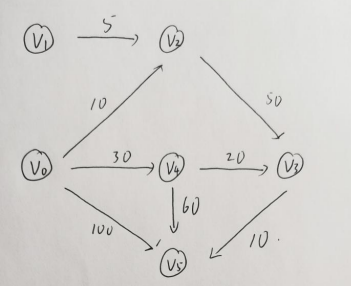 V1 5 V2
10 50
V0 30 V4 20 V3
60
100 10
V5